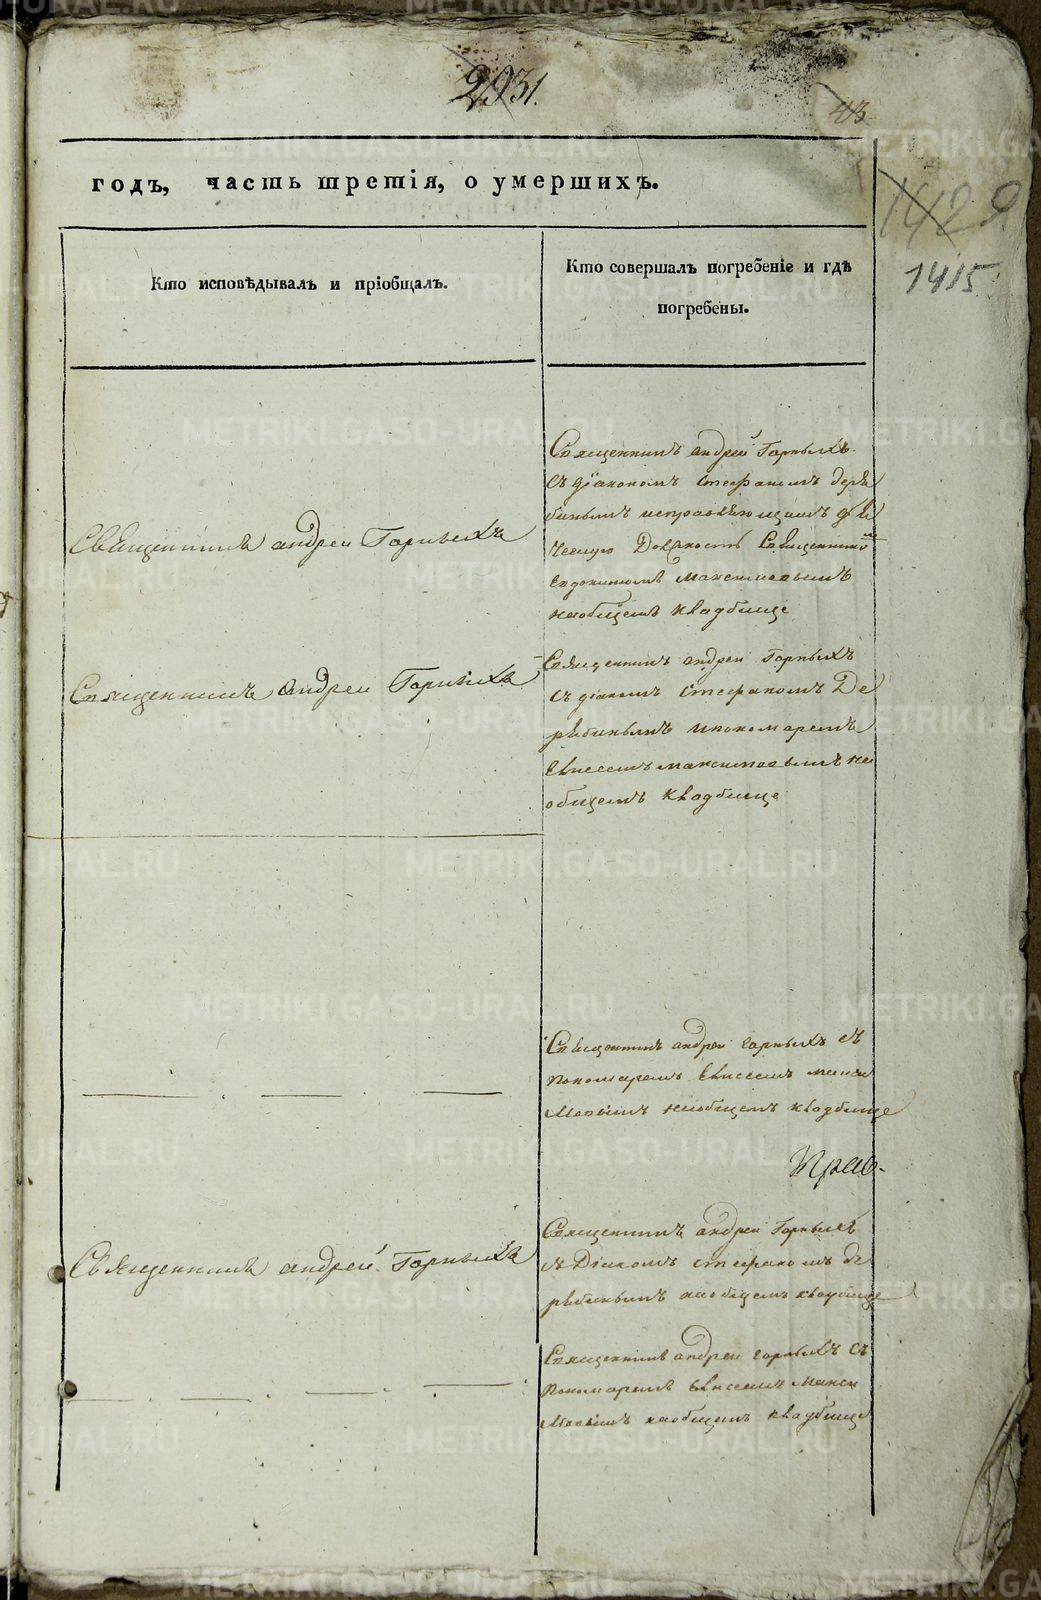 2931.
43
годъ, часть третія, о умершихъ.
1429
1415
Кто исповѣдывалъ и пріобщалъ.
Кто совершалъ погребеніе и гдѣ
погребены.
Священникъ андрей Горныхъ
Священникъ андрей Горныхъ
съ діакономъ стефаномъ деря
бинымъ исправляющимъ дья
ческую Должность Священник
Евдокимомъ максимовымъ
наобщемъ кладбище
Священникъ андреи Горныхъ
Священникъ андреи Горныхъ
съ діакомъ стефаномъ Де
рябинымъ ипономаремъ
Елисеемъ максимовымъ на
общемъ кладбище
Священникъ андреи горныхъ съ
пономаремъ Елисеемъ макси
мовымъ наобщемъ кладбище
Прав-
Священникъ андрей Горныхъ
Священникъ андреи Горныхъ
съ Діакомъ стефаномъ де
рябинымъ наобщемъ кладбище
Священникъ андреи горныхъ съ
пономаремъ Елисеемъ Макси
мовымъ наобщемъ кладбище
METRIKI.GASO-URAL.RU